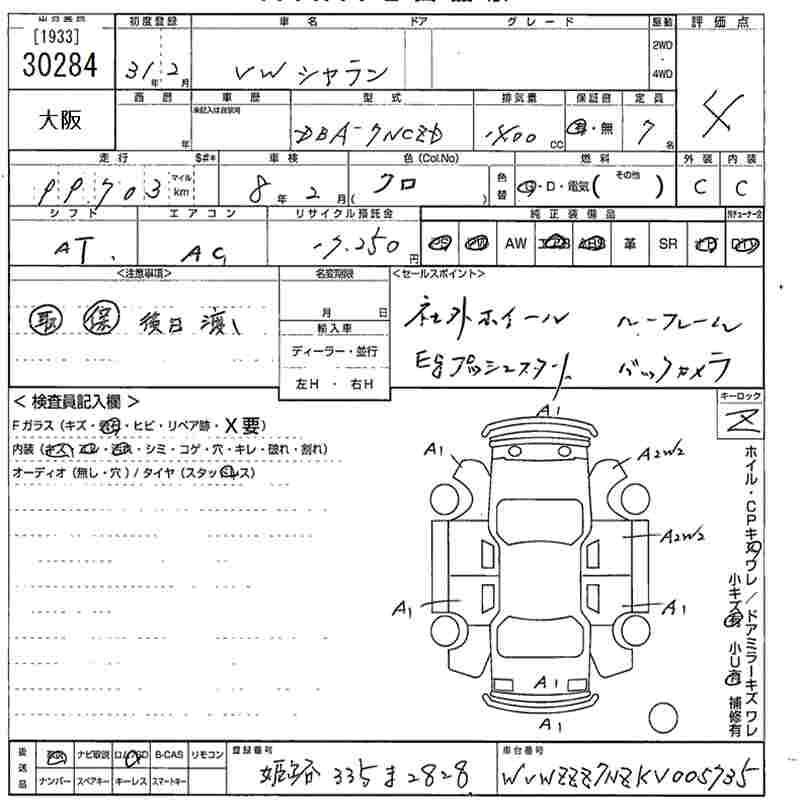 [1933]
30284
大阪
初度登録 車名 ドア グレード 駆動 評価点
31年 2月 VW シャラン 2WD 4WD 4
西暦 車歴 型式 排気量 保証書 定員
未記入は自家用
年 DBA-7NCZD 1400 CC 有・無 7名
走行 $#* 車検 色(Col.No) 燃料 外装 内装
99,703 マイル km 8年 2月 クロ ( ) 色替 G・D・電気( その他 ) C C
シフト エアコン リサイクル預託金 純正装備品
AT. AC 円 PS PW AW 革 SR
<注意事項> 名変期限 <セールスポイント>
取 保 後日渡し 月 日 社外ホイール ルーフレーム
輸入車
ディーラー・並行
Egプッシュスタート バックカメラ
左H ・ 右H
<検査員記入欄> キーロック
Fガラス(キズ・ ・ヒビ・リペア跡・X要)
内装(キズ ・ ・ ・シミ・コゲ・穴・キレ・破れ・割れ)
オーディオ(無し・穴)/タイヤ(スタッドレス)
A1
A1 A2W2
A2W2
A1 A1
A1
A1
ホイル・CPキズ ワレ/ドアミラーキズ ワレ
小キズ有 小U有 補修有
後送品 ナビ取説 B-CAS リモコン 登録番号 車台番号
ナンバー スペアキー キーレス スマートキー
姫路 335 ま 2828 WVWZZZ7NZKV005735